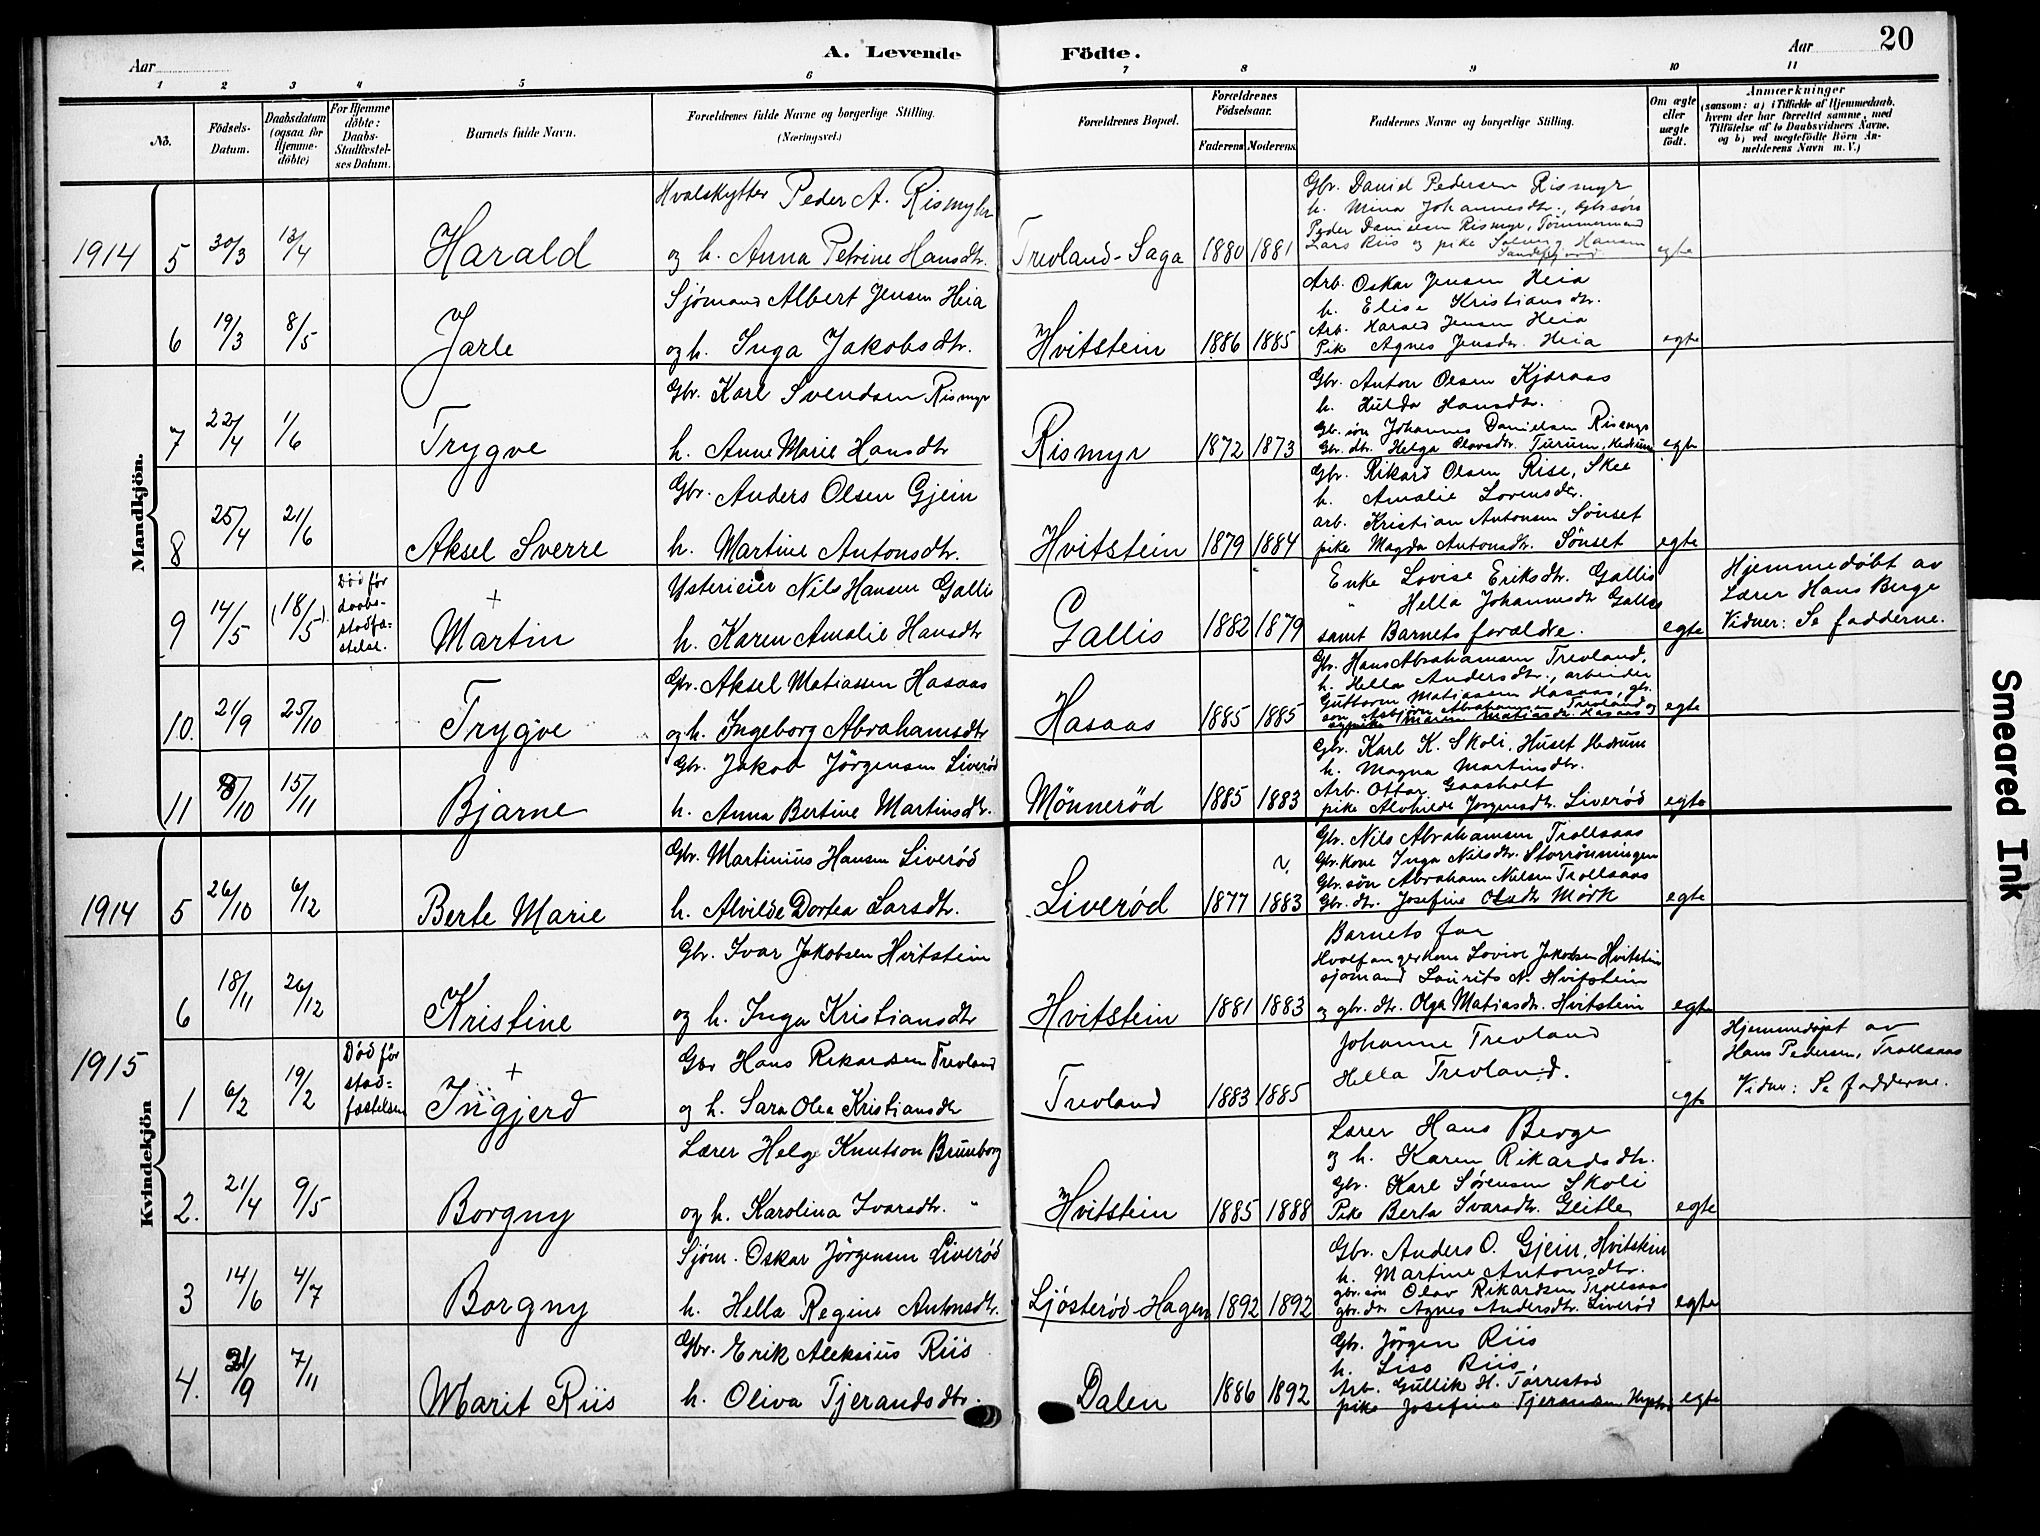 20
A. Levende Födte.
Aar
Aar
1 2 3 4 5 6 7 8 9 10 11
No.
Födsels-
Datum.
Daabsdatum
(ogsaa for
Hjemme-
döbte)
For Hjemme
döbte:
Daabs-
Stadfæstel-
ses Datum.
Barnets fulde Navn.
Forældrenes fulde Navne og borgerlige Stilling.
(Næringsvei.)
Forældrenes Bopæl.
Forældrenes
Födselsaar.
Faderens Moderens
Faddernes Navne og borgerlige Stilling.
Om ægte
eller
uægte
født.
Anmærkninger
(saasom: a) i Tilfælde af Hjemmedaab,
hvem der har forrettet samme, med
Tilföielse af to Daabsvidners Navne,
og b) ved uægtefödte Börn An-
melderens Navn m. V.)
Mandkjön.
1914 5 30/3 13/4 Harald
Hvalskytter Peder A. Rismyhr
og h. Anna Petrine Hansdtr.
Trevland-Saga 1880 1881
Gbr. Daniel Pedersen Rismyr
h. Mina Johannesdtr., gbr sön
Peder Danielsen Rismyr, Tömmermand
Lars Riis og pike Solveig Hansen
Sandefjord
egte
6 19/3 8/5 Jarle
Sjömand Albert Jensen Heia
og h. Inga Jakobsdtr.
Hvitstein 1886 1885
Arb. Oskar Jensen Heia
h. Elise Kristiansdtr.
Arb. Harald Jensen Heia
Pike Agnes Jensdtr. Heia
egte
7 22/4 1/6 Trygve
Gbr. Karl Svendsen Rismyr
h. Anne Marie Hansdtr
Rismyr 1872 1873
Gbr. Anton Olsen Kjæraas
h. Hulda Hansdtr.
Gb. sön Johannes Danielsen Rismyr
Gbr. dtr. Helga Olavsdtr. Furum, Hedrum
egte
8 25/4 21/6 Aksel Sverre
Gbr. Anders Olsen Gjein
h. Martine Antonsdtr.
Hvitstein 1879 1884
Gbr. Rikard Olsen Rise, Skee
h. Amalie Lorensdtr.
arb. Kristian Antonsen Sönset
pike Magda Antonsdtr. Sönset
egte
9 14/5 (18/5)
Död før
daabs-
stadfæ-
stelse.
+
Martin
Ystericier Nils Hansen Gallis
h. Karen Amalie Hansdtr
Gallis 1882 1879
Enke Lovise Eriksdtr. Gallis
" Hella Johannesdtr Gallis
samt Barnets forældre.
egte
Hjemmedøbt av
Lærer Hans Berge
Vidner: Se fadderne.
10. 21/9 25/10 Trygve
Gbr. Aksel Matiassen Hasaas
og h. Ingeborg Abrahamsdtr
Hasaas 1885 1885
Gbr. Hans Abrahamsen Trevland,
h. Hella Andersdtr., arbeider
Guttorm Matiassen Hasaas, gbr.
søn Asbjørn Abrahamsen Trevland og
sypike Maren Matiasdtr. Hasaas
egte
11 8/10 15/11 Bjarne
Gbr. Jakob Jörgensen Liverød
h. Anna Bertine Martinsdtr.
Mönnerød 1885 1883
Gbr. Karl K. Skoli, Huset Hedrum
h. Magna Martinsdtr.
Arb. Ottar Gaasholt
pike Alvhilde Jörgensdtr. Liverød
egte
Kvindekjön
1914 5 26/10 6/12 Berte Marie
Gbr. Martinius Hansen Liverød
h. Alvilde Dortea Larsdtr.
Liverød 1877 1883
Gbr. Nils Abrahamsen Trollsaas
Gbr. kone Inga Nilsdtr. Storrönningen
Gbr. sön Abraham Nilsen Trollsaas
Gbr. dtr. Josefine Olsdtr Mörk
egte
6 18/11 26/12 Kristine
Gbr. Ivar Jakobsen Hvitstein
og h. Inga Kristiansdtr
Hvitstein 1881 1883
Barnets far
Hvalfangerkone Lovise Jakobsen Hvitstein
sjömand Laurits N. Hvitstein
og gbr. dtr. Olga Matiasdtr. Hvitstein
egte
1915 1 6/2 19/2
Død før
stad-
fæstelsen
+
Ingjerd
Gbr Hans Rikardsen Trevland
og h. Sara Olea Kristiansdtr
Trevland 1883 1885
Johanne Trevland
Hella Trevland.
egte
Hjemmedöpt av
Hans Pedersen, Trollsaas
Vidner: Se fadderne.
2. 21/4 9/5 Borgny
Lærer Helge Knutson Brunborg
og h. Karolina Ivarsdtr. "
Hvitstein 1885 1888
Lærer Hans Berge
og h. Karen Rikardsdtr.
Gbr. Karl Sørensen Skoli
Pike Berta Ivarsdtr. Geitle
egte
3 14/6 4/7 Borgny
Sjöm. Oskar Jörgensen Liverød
h. Hella Regine Antonsdtr.
Ljösterød-Hagen 1892 1892
Gbr. Anders O. Gjein, Hvitstein
h. Martine Antonsdtr.
gbr. sön Olav Rikardsen Trollsaas
gbr. dtr Agnes Andersdtr. Liverød
egte
4. 21/9 7/11 Marit Riis
Gbr. Erik Aleksius Riis
h. Oliva Tjerandsdtr.
Dalen 1886 1892
Gbr. Jörgen Riis
h. Lisa Riis,
Arb. Gullik H. Torrestad
pike Josefine Tjerandsen
egte
Smeared Ink